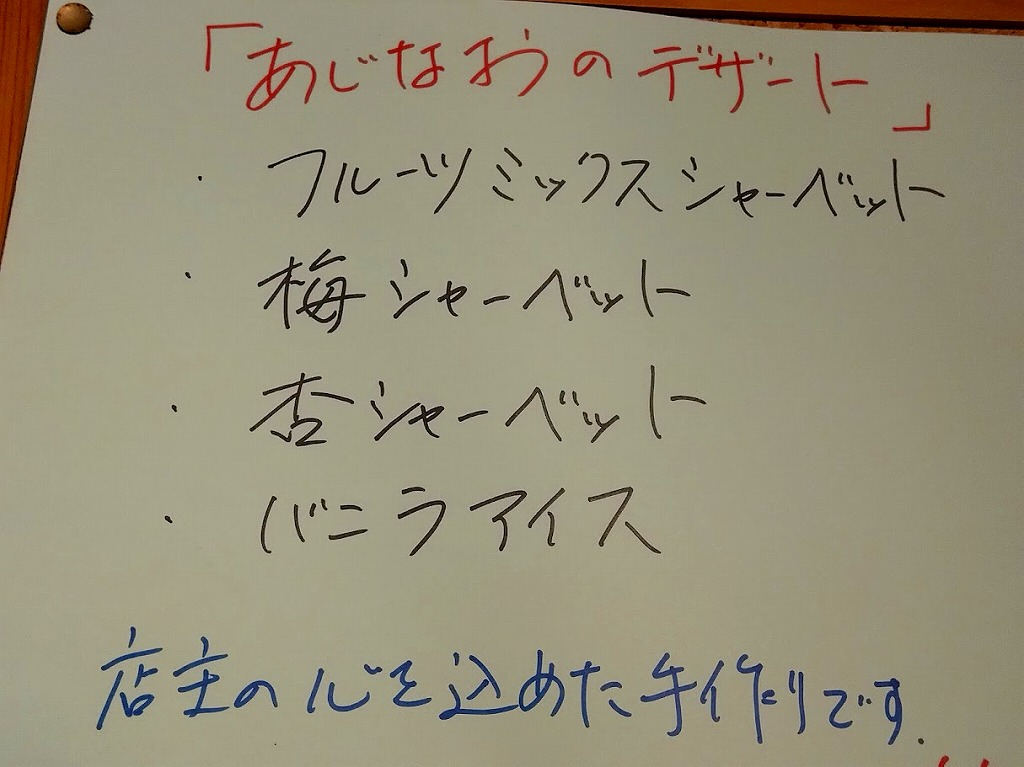 「あじなおうのデザート」
・フルーツミックスシャーベット
・梅シャーベット
・杏シャーベット
・バニラアイス
店主の心を込めた手作りです.